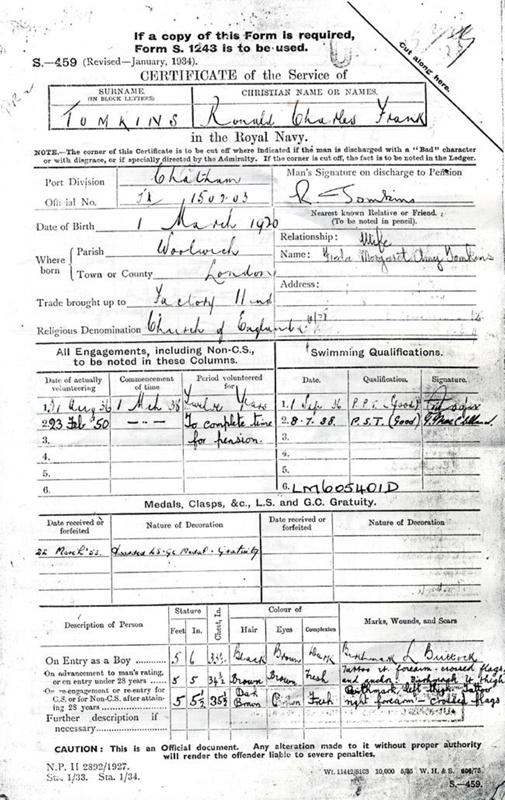 If a copy of this Form is required,
Form S. 1243 is to be used.
S.—459 (Revised—January, 1934).
Cut along here.
CERTIFICATE of the Service of
SURNAME. CHRISTIAN NAME OR NAMES.
(IN BLOCK LETTERS)
TOMKINS Ronald Charles Frank
in the Royal Navy.
NOTE.—The corner of this Certificate is to be cut off where indicated if the man is discharged with a "Bad" character
or with disgrace, or if specially directed by the Admiralty. If the corner is cut off, the fact is to be noted in the Ledger.
Port Division Chatham
Man's Signature on discharge to Pension
Official No. JX 150703
R Tomkins
Date of Birth 1 March 1920
Nearest known Relative or Friend.
(To be noted in pencil).
Relationship: Wife
Where born
Parish Woolwich
Name: Margaret Amy Tomkins
Town or County London
Address:
Trade brought up to Factory Hand
Religious Denomination Church of England
All Engagements, including Non-C.S.,
to be noted in these Columns.
Swimming Qualifications.
Date of actually volunteering Commencement of time Period volunteered for
Date. Qualification. Signature.
1. 31 Aug 36 1 Mch 38 Twelve Years
1. 1 Sep 36 P.P.T. (Good)
2. 23 Feb '50 —·— To complete time
for pension.
2. 8.7.38. P.S.T. (Good)
3. 3.
4. 4.
5. 5.
6. 6. LM605401D
Medals, Clasps, &c., L.S. and G.C. Gratuity.
Date received or forfeited Nature of Decoration Date received or forfeited Nature of Decoration
22 March '53. Awarded LS. GC Medal. Gratuity
Description of Person Stature Chest, In. Colour of Marks, Wounds, and Scars
Feet In. Hair Eyes Complexion
On Entry as a Boy 5 6 Black Brown Dark Birthmark L Buttock
On advancement to man's rating,
or on entry under 28 years 5 5 34½ Brown Brown Fresh Tattoo rt forearm - crossed flags
and anchor. Birthmark lt thigh
On re-engagement or re-entry for
C.S. or for Non-C.S. after attain-
ing 28 years 5 5½ 35½ Dark Brown Brown Fresh Birthmark left thigh Tattoo
right forearm - crossed flags
Further description if
necessary
CAUTION: This is an Official document. Any alteration made to it without proper authority
will render the offender liable to severe penalties.
N.P. II 2892/1927.
Sta. 1/33. Sta. 1/34.
Wt. 11442/5103 10,000 5/35 W. H. & S.
S.—459.